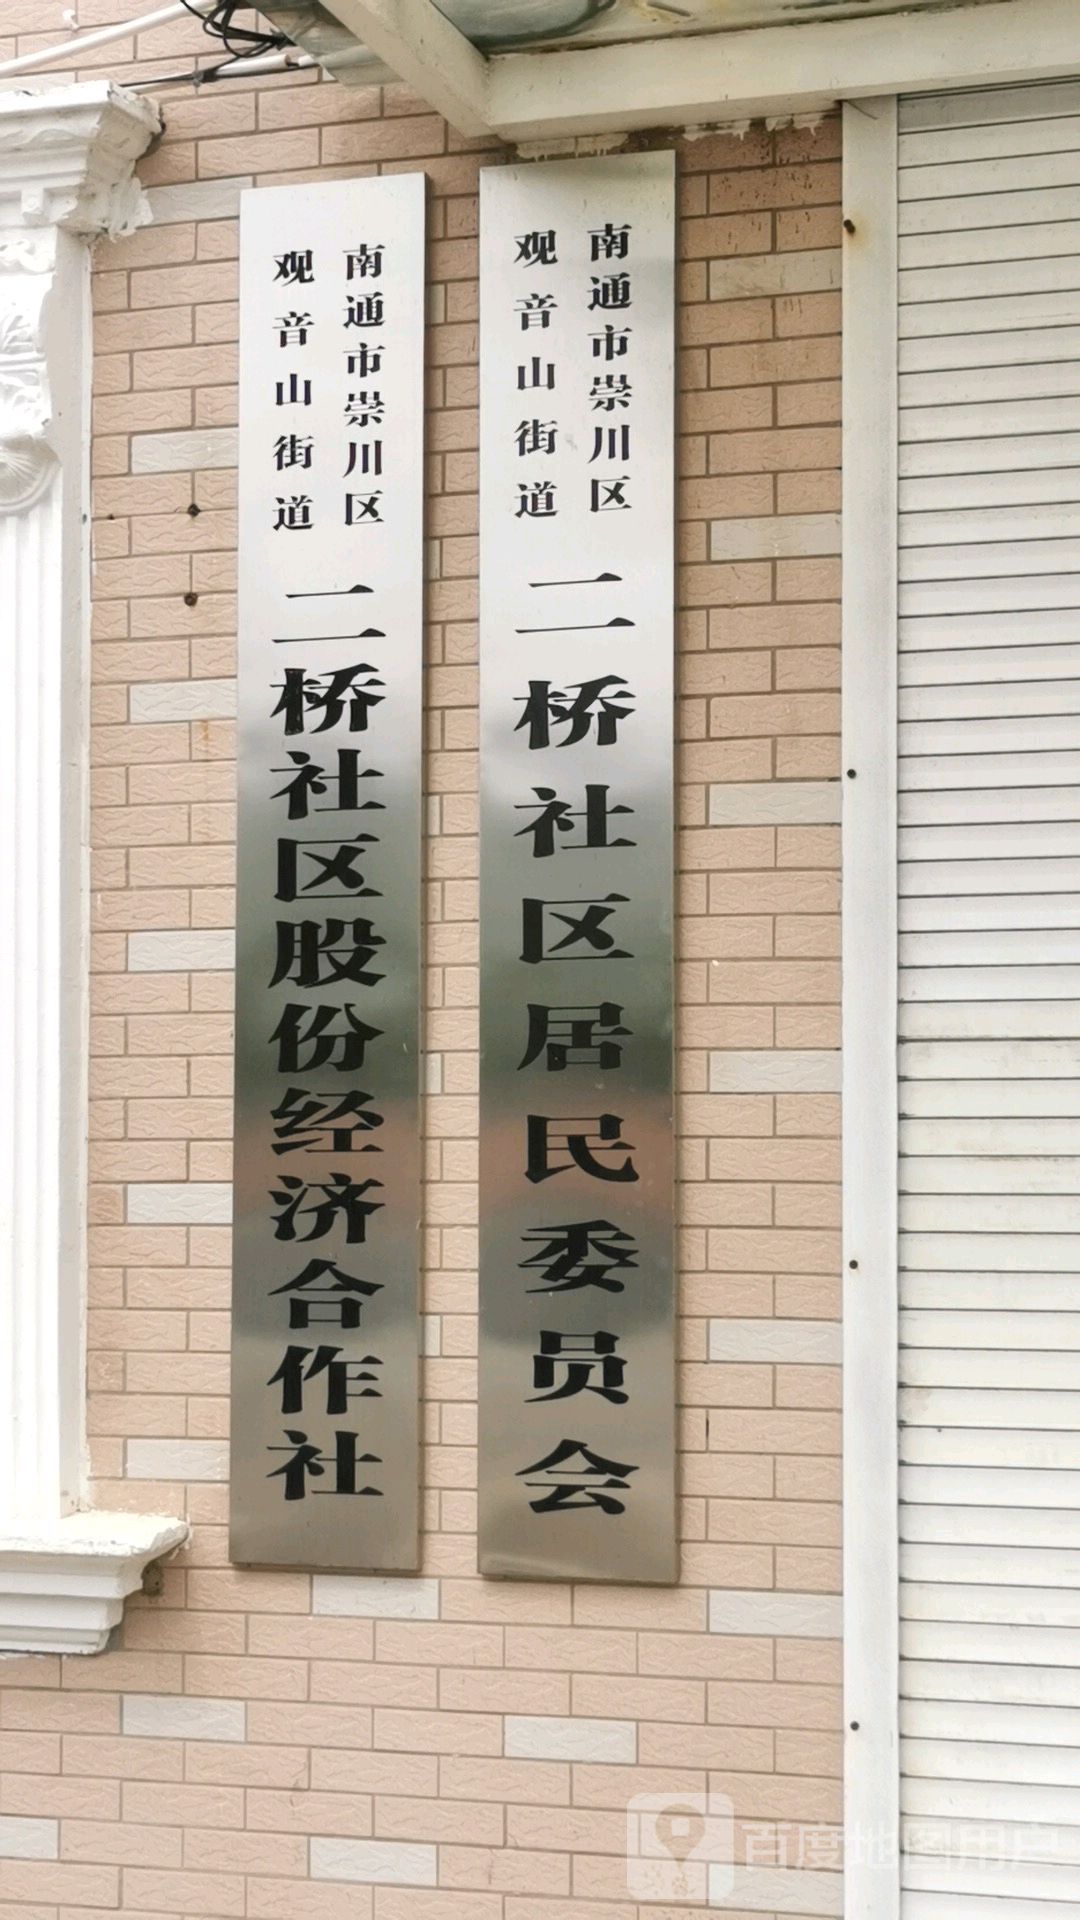 南通市崇川区
观音山街道
二桥社区居民委员会
南通市崇川区
观音山街道
二桥社区股份经济合作社
百度地图用户